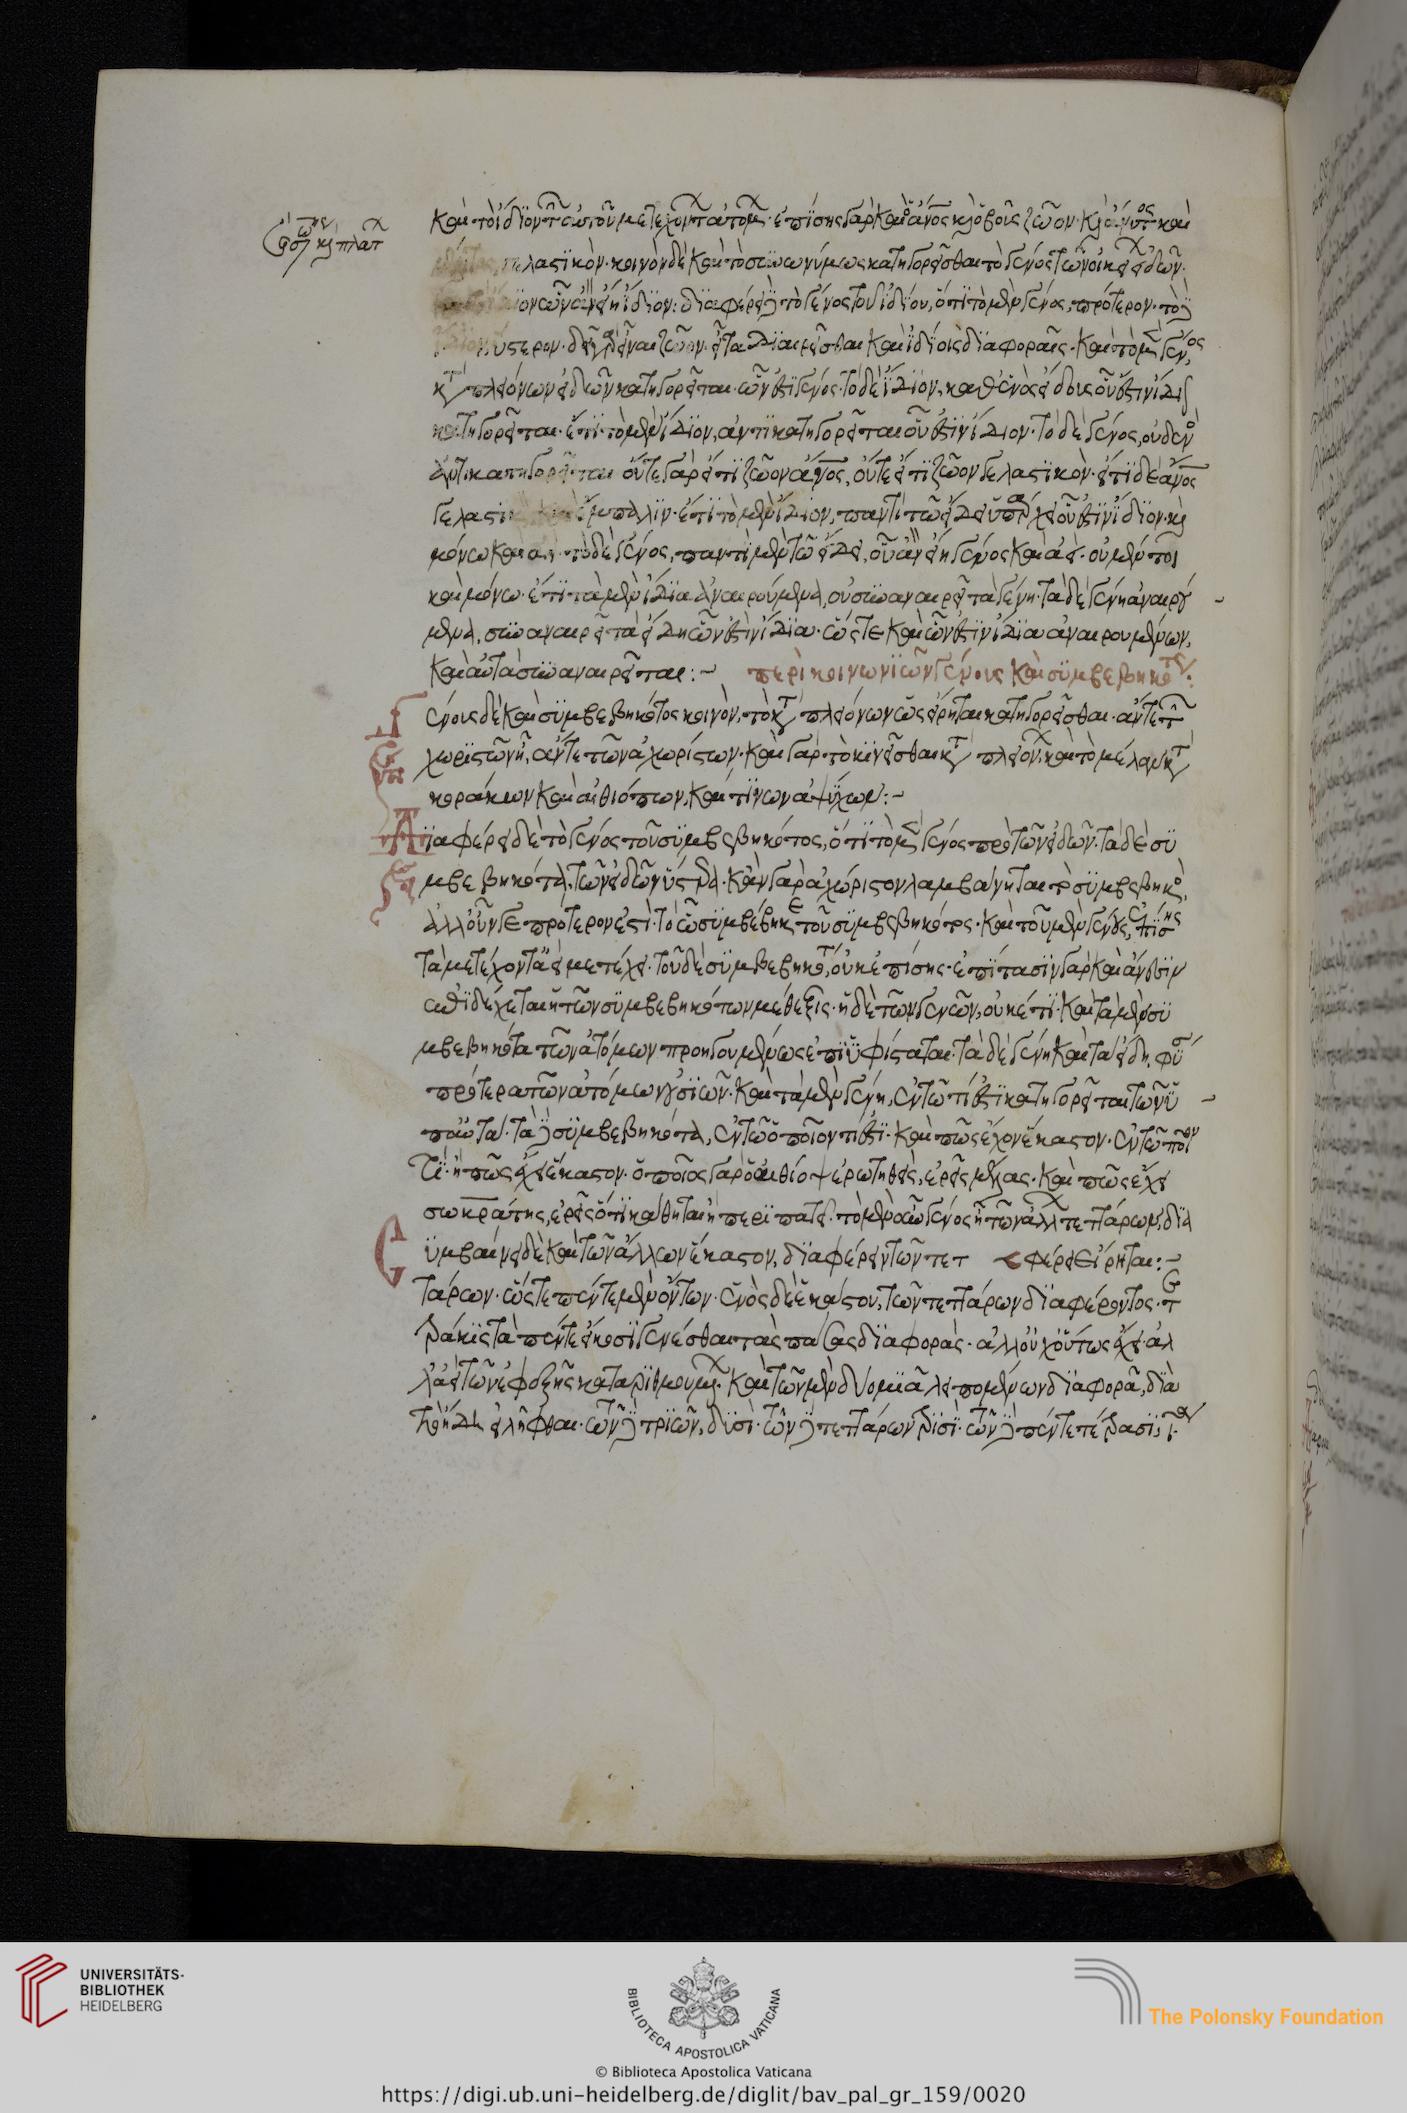 σόλων καὶ πλάτων
καὶ τὸ ἴδιον τῶν αὐτοῦ μετεχόντων ἀτόμων· ἐπίσης γὰρ καὶ ὁ ἄνος καὶ ὁ βοῦς ζῶον· καὶ ἄνυτος καὶ
γελαστικόν· κοινὸν δὲ καὶ τὸ συνωνύμως κατηγορεῖσθαι τὸ γένος τῶν οἰκείων εἰδῶν·
ὧν ἂν εἴη ἴδιον: διαφέρει δὲ τὸ γένος τοῦ ἰδίου, ὅτι τὸ μὲν γένος, πρότερον· τὸ δὲ
ἴδιον ὕστερον· δεῖ γὰρ εἶναι ζῶον· εἶτα διαιρεῖσθαι καὶ ἰδίοις διαφοραῖς· καὶ τὸ μὲν γένος
κατὰ πλειόνων εἰδῶν κατηγορεῖται· ὧν ἐστι γένος· τὸ δὲ ἴδιον, καθενὸς εἴδους οὗ ἐστιν ἴδιον
κατηγορεῖται· ἔτι τὸ μὲν ἴδιον, ἀντικατηγορεῖται οὗ ἐστιν ἴδιον· τὸ δὲ γένος, οὐδενὸς
ἀντικατηγορεῖται οὔτε γὰρ εἴ τι ζῶον ἄνος, οὔτε εἴ τι ζῶον γελαστικόν· εἴ τι δὲ ἄνος
γελαστικὸν καὶ ἔμπαλιν· ἔτι τὸ μὲν ἴδιον, παντὶ τῶ εἴδει ὑπάρχει οὗ ἐστιν ἴδιον· καὶ
μόνω καὶ ἀεί· τὸ δὲ γένος, παντὶ μὲν τῶ εἴδει, οὗ ἂν εἴη γένος καὶ ἀεί· οὐ μέντοι
καὶ μόνω· ἔτι τὰ μὲν ἴδια ἀναιρούμενα, οὐ συναναιρεῖ τὰ γένη· τὰ δὲ γένη ἀναιρού
μενα, συναναιρεῖ τὰ εἴδη ὧν ἐστὶν ἴδια· ὥστε καὶ ὧν ἐστιν ἴδια ἀναιρουμένων,
καὶ αὐτὰ συναναιρεῖται:~ περὶ κοινωνιῶν γένους καὶ συμβεβηκότος:
Γένους δὲ καὶ συμβεβηκότος κοινὸν, τὸ κατὰ πλειόνων ὡς εἴρηται κατηγορεῖσθαι· ἄντε τῶν
χωριστῶν ῇ, ἄντε τῶν ἀχωρίστων· καὶ γὰρ τὸ κινεῖσθαι κατὰ πλειόνων, καὶ τὸ μέλαν κατὰ
κοράκων καὶ αἰθιόπων, καί τινων ἀψύχων:~
Διαφέρει δὲ τὸ γένος τοῦ συμβεβηκότος, ὅτι τὸ μὲν γένος πρὸ τῶν εἰδῶν· τὰ δὲ συ
μβεβηκότα, τῶν εἰδῶν ὕστερα· κἂν γὰρ ἀχώριστον λαμβάνηται τὸ συμβεβηκὸς
ἀλλ' οὖν γε πρότερον ἐστὶ τὸ ὧ συμβέβηκε τοῦ συμβεβηκότος· καὶ τοῦ μὲν γένους, ἐπίσης
τὰ μετέχοντα μετέχει· τοῦ δὲ συμβεβηκότος, οὐκ ἐπίσης· ἐπίτασιν γὰρ καὶ ἄνεσιν
ἐπιδέχεται ἡ τῶν συμβεβηκότων μέθεξις· ἡ δὲ τῶν γενῶν, οὐκέτι· καὶ τὰ μὲν συ
μβεβηκότα τῶν ἀτόμων προηγουμένως ἐπὶ ὑφίσταται· τὰ δὲ γένη καὶ τὰ εἴδη, φύσει
πρότερα τῶν ἀτόμων οὐσιῶν· καὶ τὰ μὲν γένη, ἐν τῶ τί ἐστι κατηγορεῖται τῶν ὑ
π' αὐτά· τὰ δὲ συμβεβηκότα, ἐν τῶ ὁποῖον τί ἐστι· καὶ πῶς ἔχον ἕκαστον· ἐν τῶ ποῖον
τί· ἢ πῶς ἔχει ἕκαστον· ὁποῖος γὰρ ὁ αἰθίοψ ἐρωτηθεὶς, ἐρεῖς μέλας· καὶ πῶς ἔχει
σωκράτης, ἐρεῖς ὅτι κάθηται ἢ περιπατεῖ· τὸ μὲν οὖν γένος ἧ τῶν ἄλλων τεττάρων, δια
Συμβαίνει δὲ καὶ τῶν ἄλλων ἕκαστον, διαφέρειν τῶν τετ φέρει εἴρηται:~
τάρων· ὥστε πέντε μὲν ὄντων· ἑνὸς δὲ ἑκάστου, τῶν τεττάρων διαφέροντος· τε
τράκις τὰ πέντε εἴκοσι γενέσθαι τὰς πάσας διαφοράς· ἀλλ' οὐχ οὕτως ἔχει· ἀλ
λ' ἀεὶ τῶν ἐφεξῆς καταριθμουμένων· καὶ τῶν μὲν δύο μιᾶ λειπομένων διαφορᾶ, διὰ
τὸ ἤδη εἰλῆφθαι· τῶν δὲ τριῶν, δυσί· τῶν δὲ τεττάρων τρισί· τῶν δὲ πέντε τέτρασι,
UNIVERSITÄTS-
BIBLIOTHEK
HEIDELBERG
BIBLIOTECA APOSTOLICA VATICANA
The Polonsky Foundation
© Biblioteca Apostolica Vaticana
https://digi.ub.uni-heidelberg.de/diglit/bav_pal_gr_159/0020